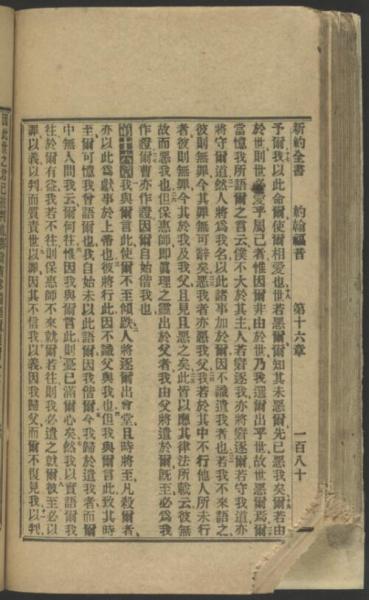 新約全書 約翰福音 第十六章 一百八十
予爾我以此命爾使相愛也世若惡爾爾知其未惡爾先已惡我矣爾若由
於世則世必愛乎屬己者惟因爾非由於世乃我選爾出乎世故世惡爾爾
當憶我所語爾之言云僕不大於其主人若窘逐我亦將窘逐爾若守我道亦
將守爾道然人將爲我名以此諸事加於爾因不識遣我者也我若不來語之
彼則無罪今其罪無可辭矣惡我者亦惡我父我若於其中不行他人所未行
者彼則無罪今其於我及我父且見且惡之矣此皆以應其律法所載云彼無
故而惡我也但保惠師即眞理之靈出於父者我由父將遣於爾既至必爲我
作證爾曹亦作證因爾自始偕我也
第十六章我與爾言此使爾不至傾跌人將逐爾出會堂且時將至凡殺爾者
亦以此爲獻事於上帝也彼將行此因不識父與我也但我與爾言此致其時
至爾可憶我曾語爾也我自始未以此語爾因我偕爾今我歸於遣我者而爾
中無人問我云爾何往惟因我與爾言此則憂已滿爾心矣然我以實語爾我
往於爾有益我若不往則保惠師不來就爾若往則我必遣之就爾彼至必以
罪以義以判而質責世以罪因其不信我以義因我歸父而爾不復見我以判